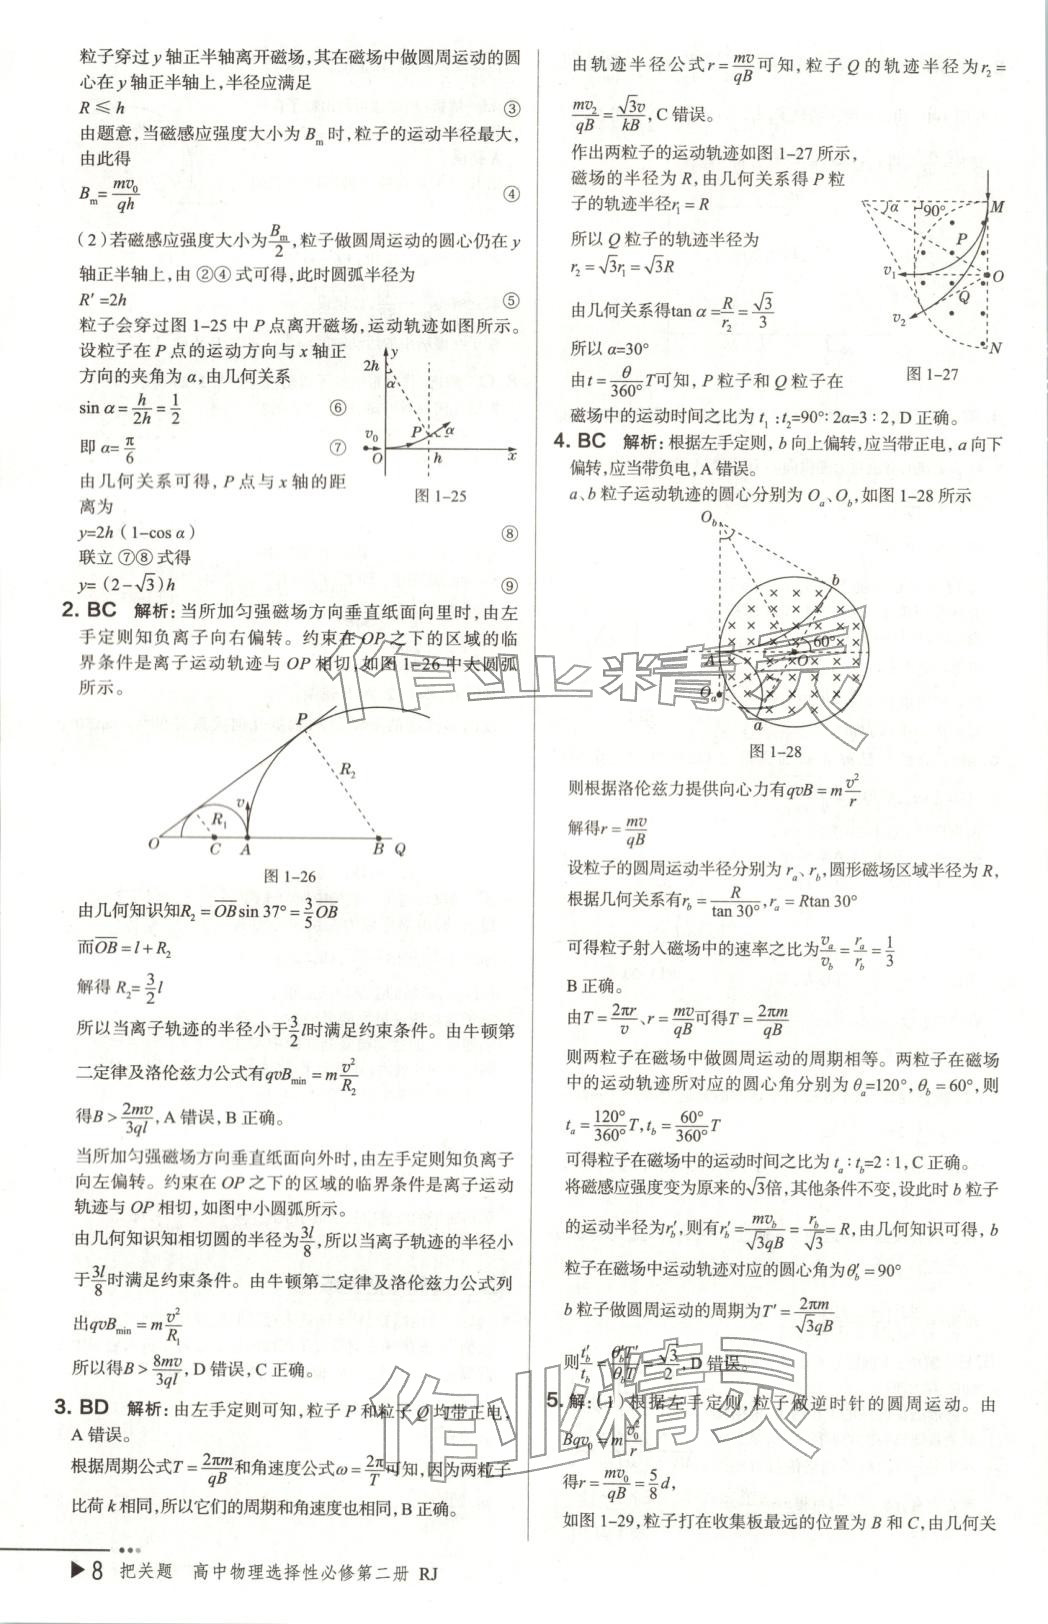 粒子穿过 y 轴正半轴离开磁场,其在磁场中做圆周运动的圆
心在 y 轴正半轴上,半径应满足
R ≤ h ③
由题意,当磁感应强度大小为 Bm 时,粒子的运动半径最大,
由此得
Bm = mv0/qh ④
(2)若磁感应强度大小为 Bm/2,粒子做圆周运动的圆心仍在 y
轴正半轴上,由 ②④ 式可得,此时圆弧半径为
R′ =2h ⑤
粒子会穿过图 1-25 中 P 点离开磁场,运动轨迹如图所示。
设粒子在 P 点的运动方向与 x 轴正
方向的夹角为 α,由几何关系
sin α = h/2h = 1/2 ⑥
即 α= π/6 ⑦
由几何关系可得, P 点与 x 轴的距
离为
y 2h α P α v0 O h x
图 1-25
y=2h(1-cos α) ⑧
联立 ⑦⑧ 式得
y=(2-√3)h ⑨
2. BC 解析:当所加匀强磁场方向垂直纸面向里时,由左
手定则知负离子向右偏转。约束在 OP 之下的区域的临
界条件是离子运动轨迹与 OP 相切,如图 1-26 中大圆弧
所示。
P R2 v R1 O C A B Q
图 1-26
由几何知识知R2 = OB sin 37° = 3/5 OB
而OB = l + R2
解得 R2= 3/2 l
所以当离子轨迹的半径小于 3/2 l时满足约束条件。由牛顿第
二定律及洛伦兹力公式有qvBmin = m v²/R2
得B > 2mv/3ql,A 错误,B 正确。
当所加匀强磁场方向垂直纸面向外时,由左手定则知负离子
向左偏转。约束在 OP 之下的区域的临界条件是离子运动
轨迹与 OP 相切,如图中小圆弧所示。
由几何知识知相切圆的半径为 3l/8,所以当离子轨迹的半径小
于 3l/8 时满足约束条件。由牛顿第二定律及洛伦兹力公式列
出qvBmin = m v²/R1
所以得B > 8mv/3ql,D 错误,C 正确。
3. BD 解析:由左手定则可知,粒子 P 和粒子 Q 均带正电,
A 错误。
根据周期公式T = 2πm/qB 和角速度公式ω = 2π/T 可知,因为两粒子
比荷 k 相同,所以它们的周期和角速度也相同,B 正确。
由轨迹半径公式 r = mv/qB 可知,粒子 Q 的轨迹半径为 r2 =
mv2/qB = √3v/kB,C 错误。
作出两粒子的运动轨迹如图 1-27 所示,
磁场的半径为 R,由几何关系得 P 粒
子的轨迹半径r1 = R
所以 Q 粒子的轨迹半径为
r2 = √3r1 = √3R
由几何关系得tan α = R/r2 = √3/3
所以 α=30°
α 90° M P v1 O Q v2 N
图 1-27
由t = θ/360° T可知, P 粒子和 Q 粒子在
磁场中的运动时间之比为 t1 :t2=90°: 2α=3 : 2,D 正确。
4. BC 解析:根据左手定则,b 向上偏转,应当带正电, a 向下
偏转,应当带负电,A 错误。
a、b 粒子运动轨迹的圆心分别为 Oa、Ob,如图 1-28 所示
Ob b 60° A O Oa a
图 1-28
则根据洛伦兹力提供向心力有qvB = m v²/r
解得r = mv/qB
设粒子的圆周运动半径分别为 ra、rb,圆形磁场区域半径为 R,
根据几何关系有rb = R/tan 30°,ra = Rtan 30°
可得粒子射入磁场中的速率之比为 va/vb = ra/rb = 1/3
B 正确。
由T = 2πr/v、r = mv/qB 可得T = 2πm/qB
则两粒子在磁场中做圆周运动的周期相等。两粒子在磁场
中的运动轨迹所对应的圆心角分别为 θa=120°, θb = 60°,则
ta = 120°/360° T, tb = 60°/360° T
可得粒子在磁场中的运动时间之比为 ta : tb=2 : 1,C 正确。
将磁感应强度变为原来的√3倍,其他条件不变,设此时 b 粒子
的运动半径为rb′,则有rb′ = mvb/√3qB = rb/√3 = R,由几何知识可得, b
粒子在磁场中运动轨迹对应的圆心角为θb′ = 90°
b 粒子做圆周运动的周期为T′ = 2πm/√3qB
则 tb′/tb = θb′T′/θbT = √3/2,D 错误。
5. 解:(1)根据左手定则,粒子做逆时针的圆周运动。由
Bqv0 = m v0²/r
得r = mv0/qB = 5/8 d,
如图 1-29,粒子打在收集板最远的位置为 B 和 C,由几何关
作业精灵
作业精灵
▶ 8 把关题 高中物理选择性必修第二册 RJ